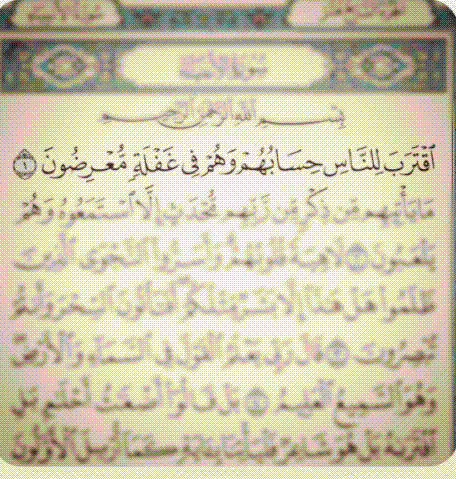 سورة الأنبياء
بِسْمِ اللَّهِ الرَّحْمَٰنِ الرَّحِيمِ
ٱقْتَرَبَ لِلنَّاسِ حِسَابُهُمْ وَهُمْ فِى غَفْلَةٍ مُّعْرِضُونَ ١
مَا يَأْتِيهِم مِّن ذِكْرٍ مِّن رَّبِّهِم مُّحْدَثٍ إِلَّا ٱسْتَمَعُوهُ وَهُمْ
يَلْعَبُونَ ٢ لَاهِيَةً قُلُوبُهُمْ وَأَسَرُّوا۟ ٱلنَّجْوَى ٱلَّذِينَ
ظَلَمُوا۟ هَلْ هَٰذَآ إِلَّا بَشَرٌ مِّثْلُكُمْ أَفَتَأْتُونَ ٱلسِّحْرَ وَأَنتُمْ
تُبْصِرُونَ ٣ قَالَ رَبِّى يَعْلَمُ ٱلْقَوْلَ فِى ٱلسَّمَآءِ وَٱلْأَرْضِ
وَهُوَ ٱلسَّمِيعُ ٱلْعَلِيمُ ٤ بَلْ قَالُوٓا۟ أَضْغَٰثُ أَحْلَٰمٍ بَلِ
ٱفْتَرَىٰهُ بَلْ هُوَ شَاعِرٌ فَلْيَأْتِنَا بِـَٔايَةٍ كَمَآ أُرْسِلَ ٱلْأَوَّلُونَ